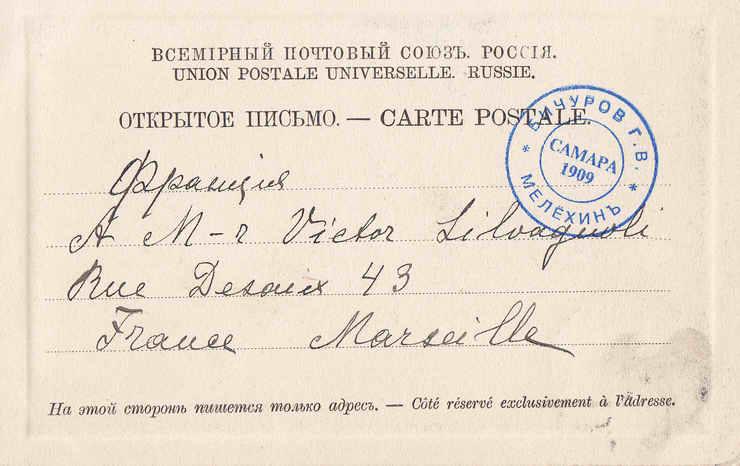 ВСЕМІРНЫЙ ПОЧТОВЫЙ СОЮЗЪ. РОССІЯ.
UNION POSTALE UNIVERSELLE. RUSSIE.
ОТКРЫТОЕ ПИСЬМО. — CARTE POSTALE.
БИЧУРОВ Г.В.
САМАРА
1909
* МЕЛЁХИНЪ *
Франція
A M-r Victor Silvagnoli
Rue Desaix 43
France Marseille
На этой сторонѣ пишется только адресъ. — Côté réservé exclusivement à l'adresse.